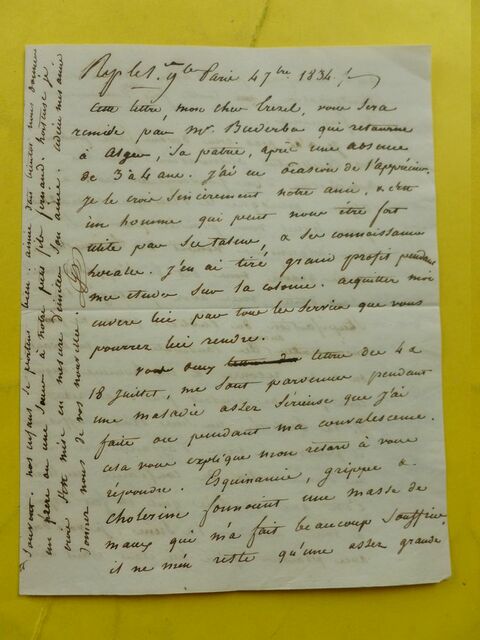 Paris 4 7bre 1834.
Cette lettre, mon cher Trezel, vous sera
remise par Mr Buderba qui retourne
à Alger, sa patrie, après une absence
de 3 à 4 ans. j'ai eu occasion de l'apprécier.
je le crois sincèrement notre ami. & c'est
un homme qui peut nous être fort
utile par ses talens, & ses connaissances
locales. j'en ai tiré grand profit pendant
mes études sur la colonie. acquittez moi
envers lui par tous les services que vous
pourrez lui rendre.
vos deux lettres des 4 &
18 juillet, me sont parvenues pendant
une maladie assez sérieuse que j'ai
faite ou pendant ma convalescence.
cela vous explique mon retard à vous
répondre. Esquinancie, grippe &
cholerine formoient une masse de
maux qui m'a fait beaucoup souffrir.
il ne m'en reste qu'une assez grande
souvent. nos enfans se portent bien. aimée doit bientôt nous donner
un frère ou une soeur à notre petit fils fernand. hortense je
crois s'est mise en mesure d'imiter son aînée. adieu mes amis
donnez nous de vos nouvelles.